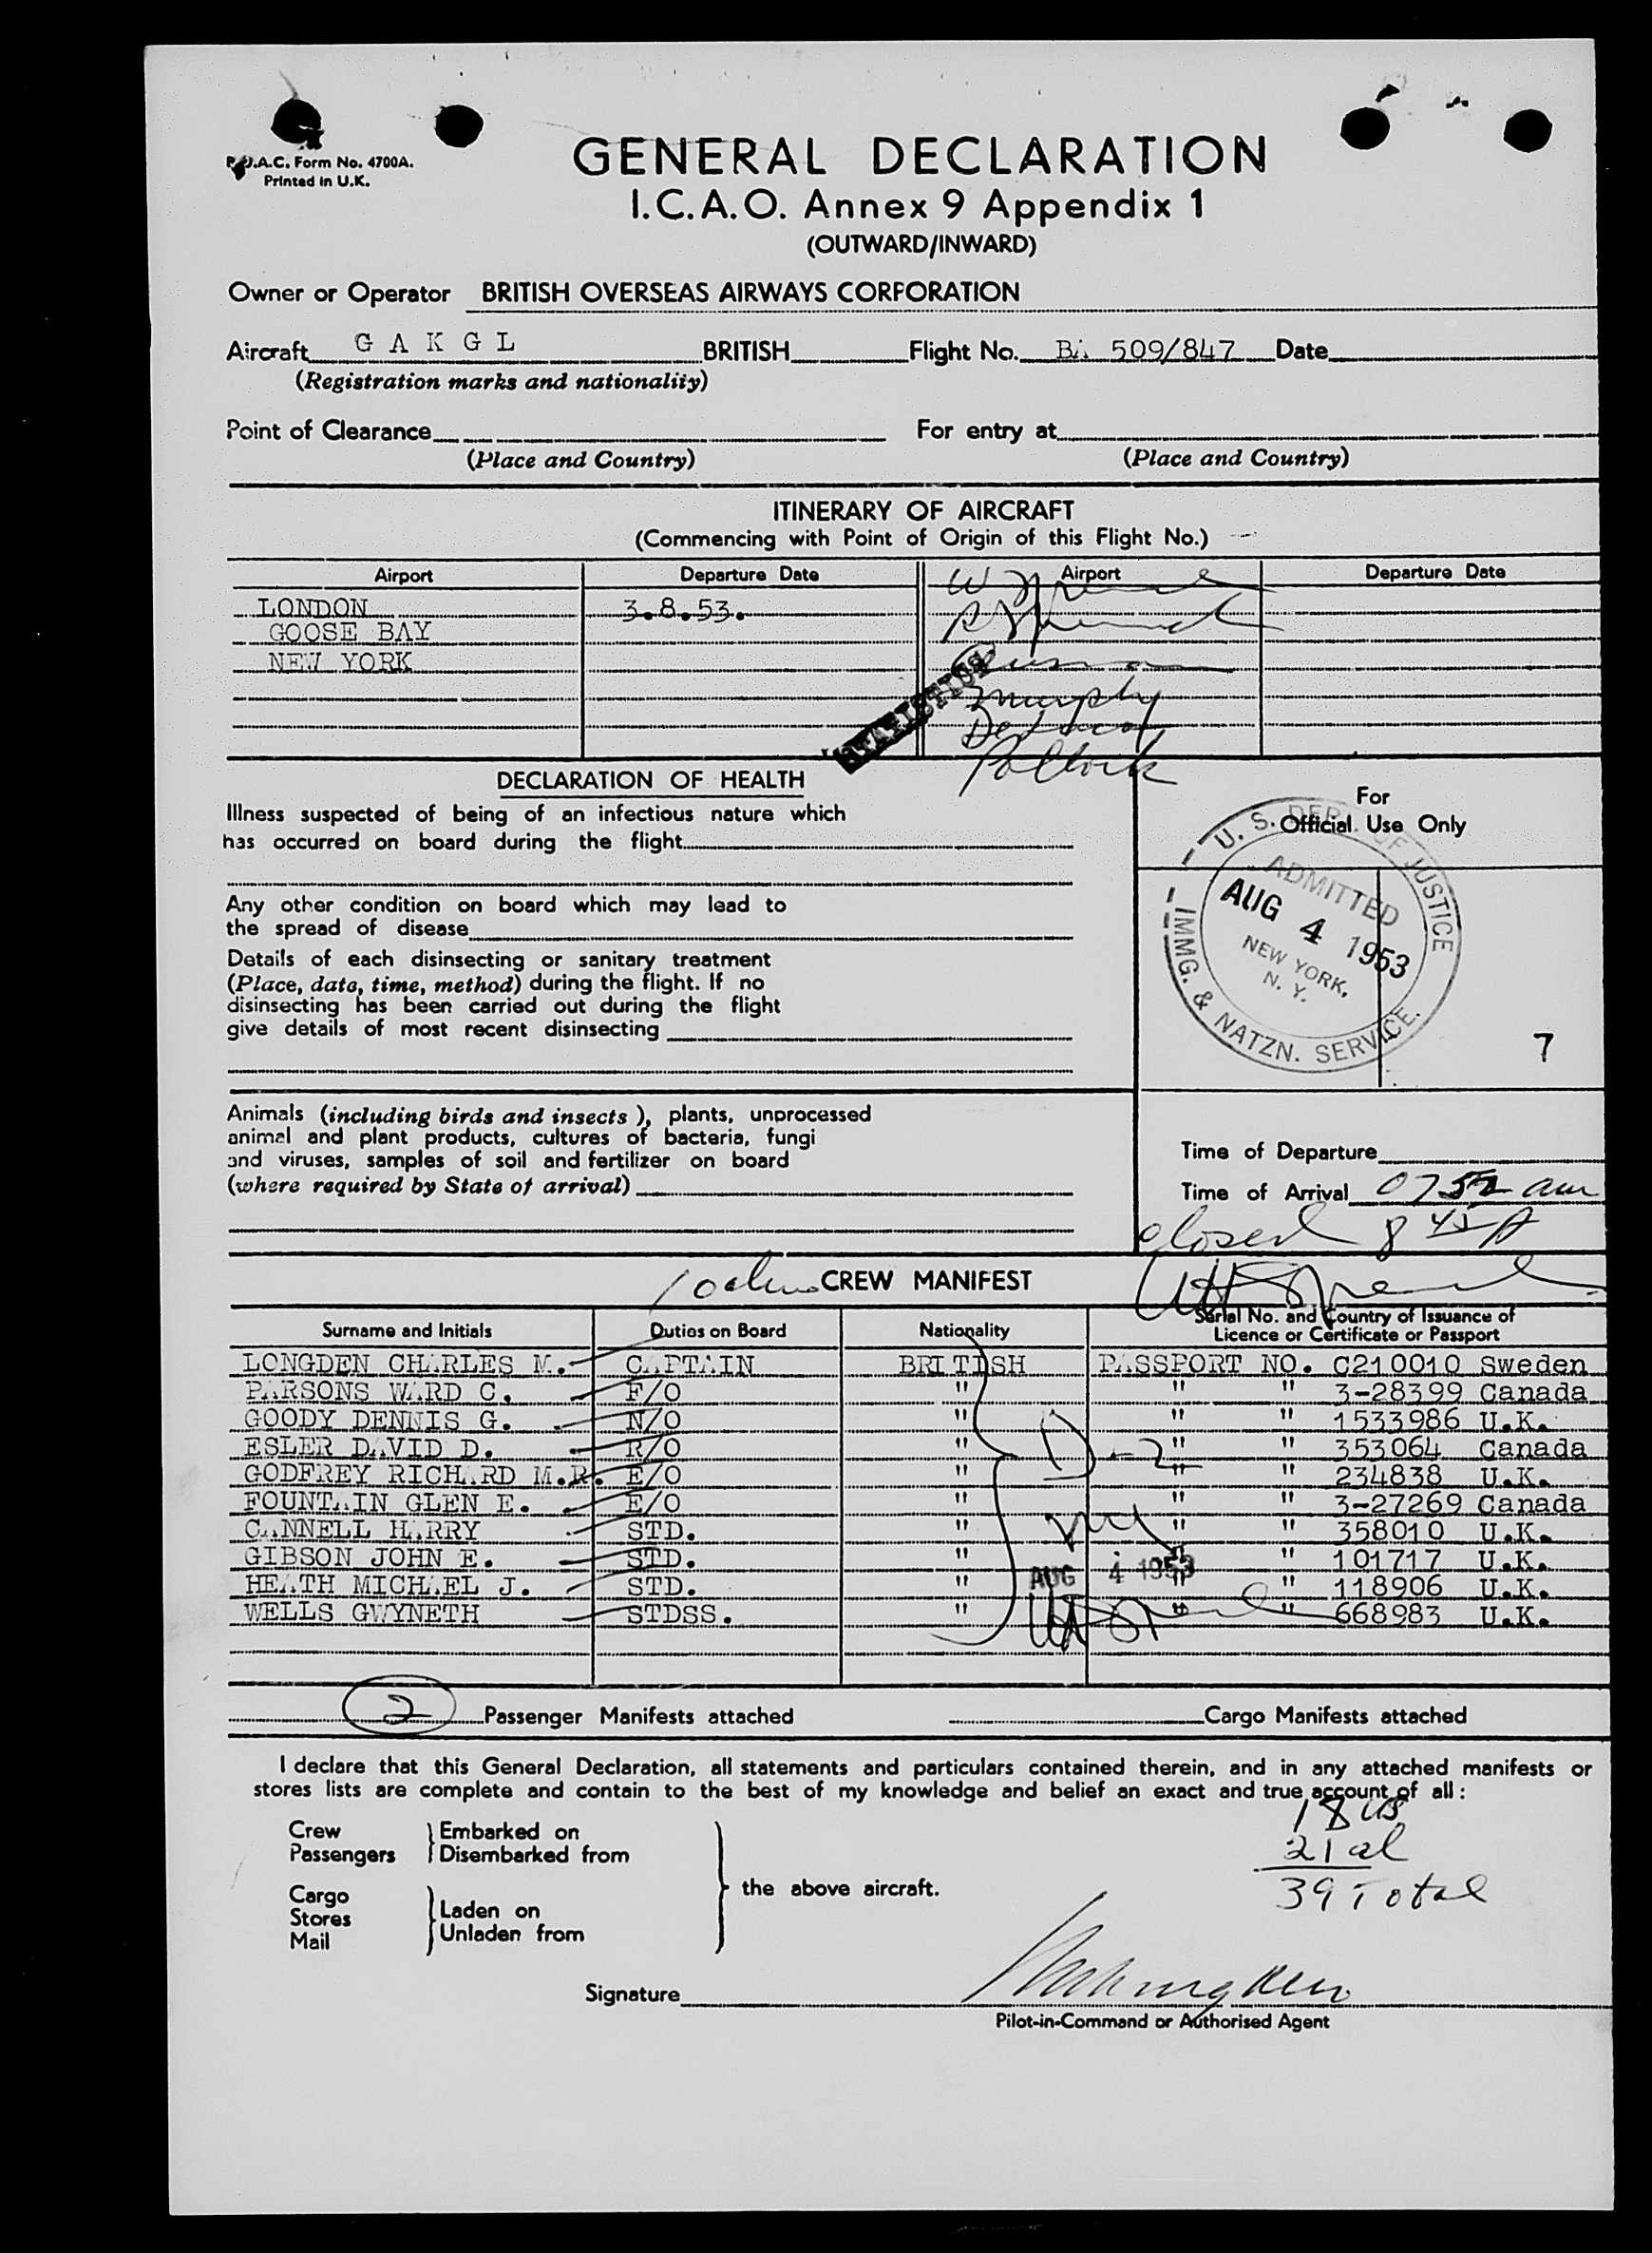 .A.C. Form No. 4700A.
Printed in U.K.
GENERAL DECLARATION
I.C.A.O. Annex 9 Appendix 1
(OUTWARD/INWARD)
Owner or Operator BRITISH OVERSEAS AIRWAYS CORPORATION
Aircraft G A K G L BRITISH Flight No. 509/847 Date
(Registration marks and nationality)
Point of Clearance For entry at
(Place and Country) (Place and Country)
ITINERARY OF AIRCRAFT
(Commencing with Point of Origin of this Flight No.)
Airport Departure Date Airport Departure Date
LONDON 3.8.53.
GOOSE BAY
NEW YORK
STATISTICS
Murphy
Pollock
DECLARATION OF HEALTH
Illness suspected of being of an infectious nature which
has occurred on board during the flight
Any other condition on board which may lead to
the spread of disease
Details of each disinsecting or sanitary treatment
(Place, date, time, method) during the flight. If no
disinsecting has been carried out during the flight
give details of most recent disinsecting
For
Official Use Only
U. S. DEPT. OF JUSTICE
ADMITTED
AUG 4 1953
NEW YORK,
N. Y.
IMMG. & NATZN. SERVICE.
7
Animals (including birds and insects), plants, unprocessed
animal and plant products, cultures of bacteria, fungi
and viruses, samples of soil and fertilizer on board
(where required by State of arrival)
Time of Departure
Time of Arrival 0752 am
closed 8 45 A
CREW MANIFEST
Surname and Initials Duties on Board Nationality Serial No. and Country of Issuance of
Licence or Certificate or Passport
LONGDEN CHARLES M. CAPTAIN BRITISH PASSPORT NO. C210010 Sweden
PARSONS WARD C. F/O " " " 3-28399 Canada
GOODY DENNIS G. N/O " " " 1533986 U.K.
ESLER DAVID D. R/O " " " 353064 Canada
GODFREY RICHARD M.R. E/O " " " 234838 U.K.
FOUNTAIN GLEN E. E/O " " " 3-27269 Canada
CANNELL HARRY STD. " " " 358010 U.K.
GIBSON JOHN E. STD. " " " 101717 U.K.
HEATH MICHAEL J. STD. " " " 118906 U.K.
WELLS GWYNETH STDSS. " " " 668983 U.K.
D-2
AUG 4 1953
2 Passenger Manifests attached Cargo Manifests attached
I declare that this General Declaration, all statements and particulars contained therein, and in any attached manifests or
stores lists are complete and contain to the best of my knowledge and belief an exact and true account of all :
Crew Embarked on
Passengers Disembarked from
the above aircraft.
Cargo
Stores Laden on
Mail Unladen from
18 us
21 al
39 Total
Signature
Pilot-in-Command or Authorised Agent